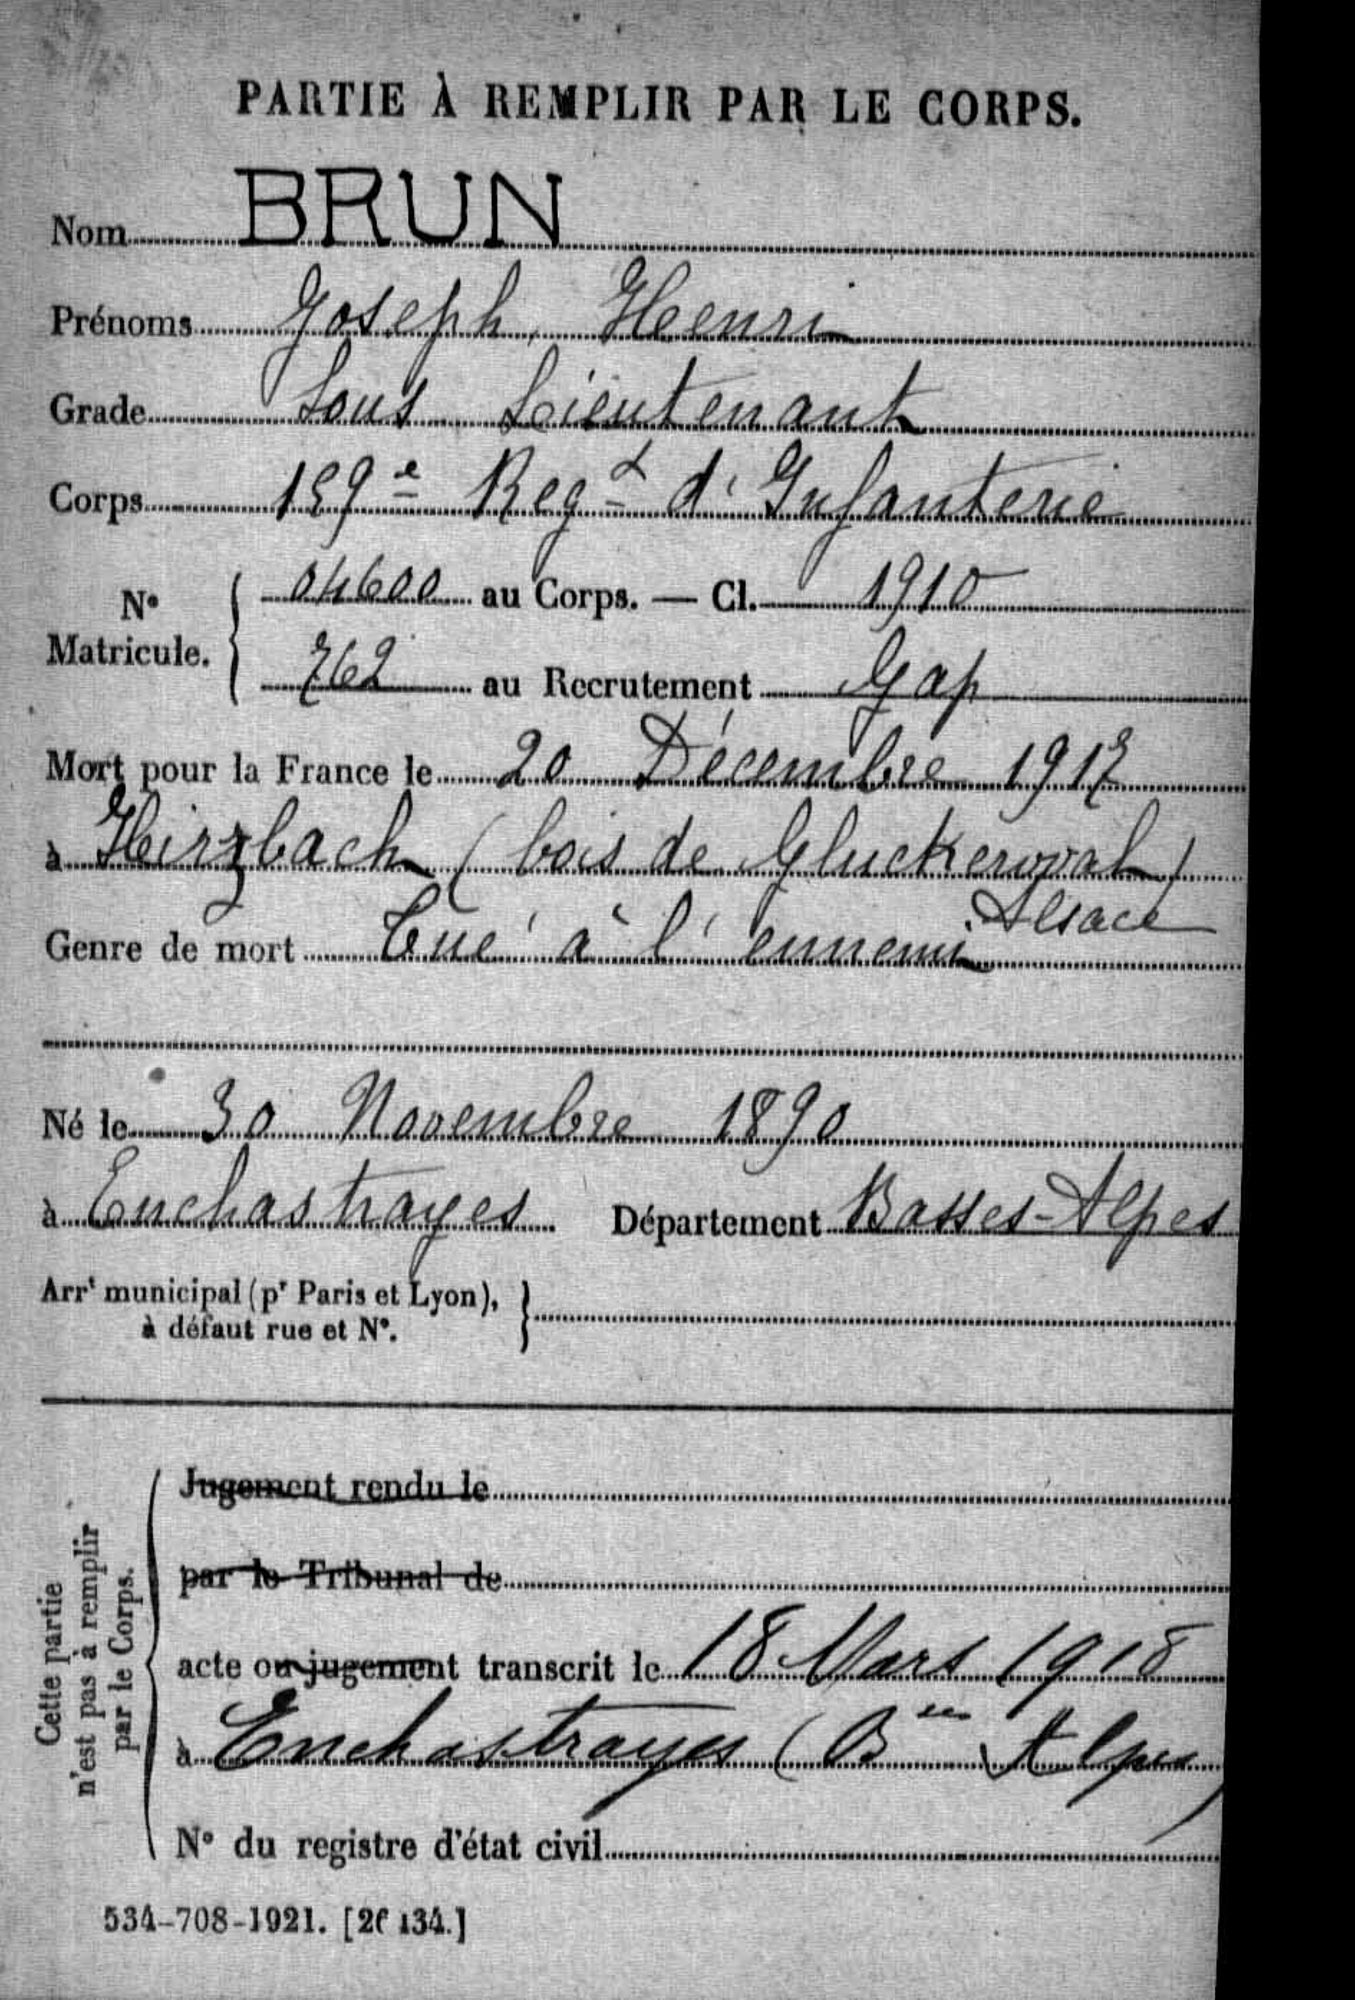 PARTIE À REMPLIR PAR LE CORPS.
Nom BRUN
Prénoms Joseph, Henri
Grade Sous Lieutenant
Corps 159e Regt d'Infanterie
No Matricule. { 04600 au Corps. — Cl. 1910
762 au Recrutement Gap
Mort pour la France le 20 Décembre 1917
à Hirzbach (bois de Gluckerwal)
Alsace
Genre de mort Tué à l'ennemi
Né le 30 Novembre 1890
à Enchastrayes Département Basses-Alpes
Arrt municipal (pr Paris et Lyon), }
à défaut rue et No.
Cette partie
n'est pas à remplir
par le Corps.
Jugement rendu le
par le Tribunal de
acte ou jugement transcrit le 18 Mars 1918
à Enchastrayes (Bses Alpes)
No du registre d'état civil
534-708-1921. [26134.]